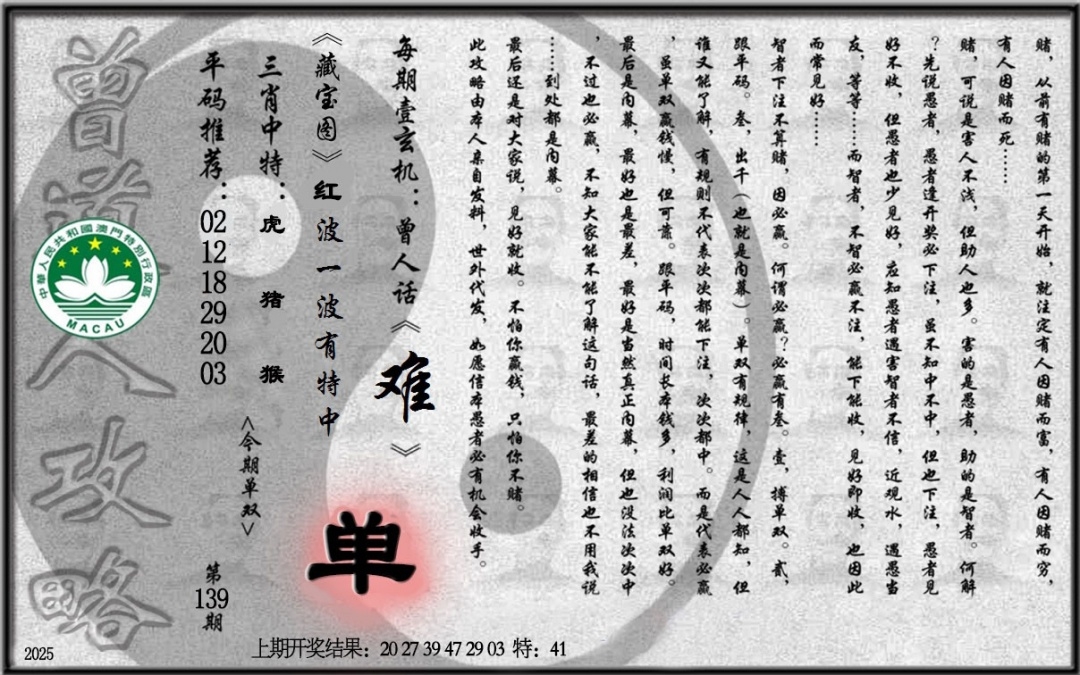 赌，从前有赌的第一天开始，就注定有人因赌而富，有人因赌而穷，
有人因赌而死……
赌，可说是害人不浅，但助人也多。害的是愚者，助的是智者。何解
？先说愚者，愚者逢开奖必下注，虽不知中不中，但也下注，愚者见
好不收，但愚者也少见好，应知愚者遇害智者不信，近观水，遇愚当
友，等等……而智者，不智必赢不注，能下能收，见好即收，也因此
而常见好……
智者下注不算赌，因必赢。何谓必赢？必赢有叁。壹，搏单双。贰，
跟平码。叁，出千（也就是内幕）。单双有规律，这是人人都知，但
谁又能了解，有规则不代表次次都能下注，次次都中。而是代表必赢
，虽单双赢钱慢，但可靠。跟平码，时间长本钱多，利润比单双好。
最后是内幕，最好也是最差，最好是当然真正内幕，但也没法次次中
，不过也必赢，不知大家能不能了解这句话，最差的相信也不用我说
……到处都是内幕。
最后还是对大家说，见好就收。不怕你赢钱，只怕你不赌。
此攻略由本人亲自发料，世外代发，如愿信本愚者必有机会收手。
每期壹玄机：曾人话《难》
《藏宝图》红波一波有特中
单
三肖中特：虎猪猴
<今期单双>
平码推荐：02 12 18 29 20 03
第139期
曾道人攻略
中華人民共和國澳門特別行政區
MACAU
2025
上期开奖结果：20 27 39 47 29 03 特：41